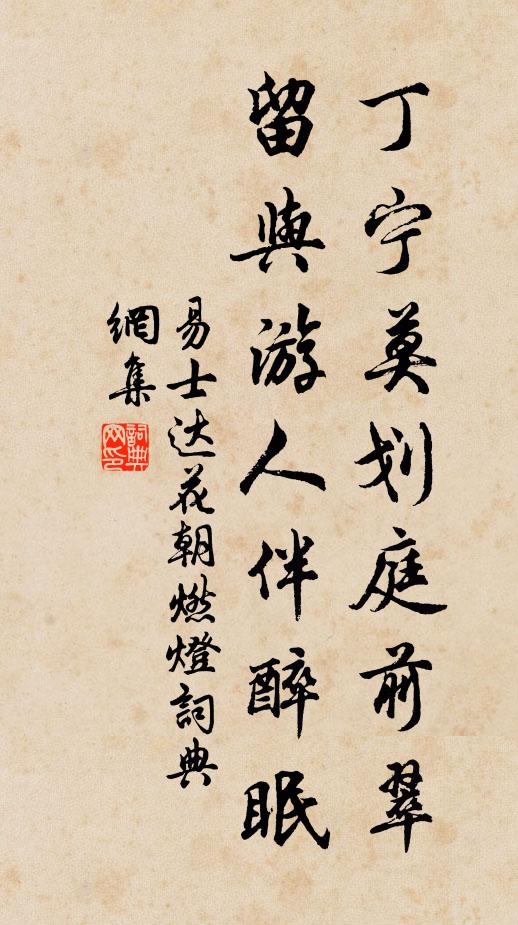 丁宁莫划庭前翠
留與游人伴醉眠
易士达花朝燃燈詞典
網集
詞典
网印